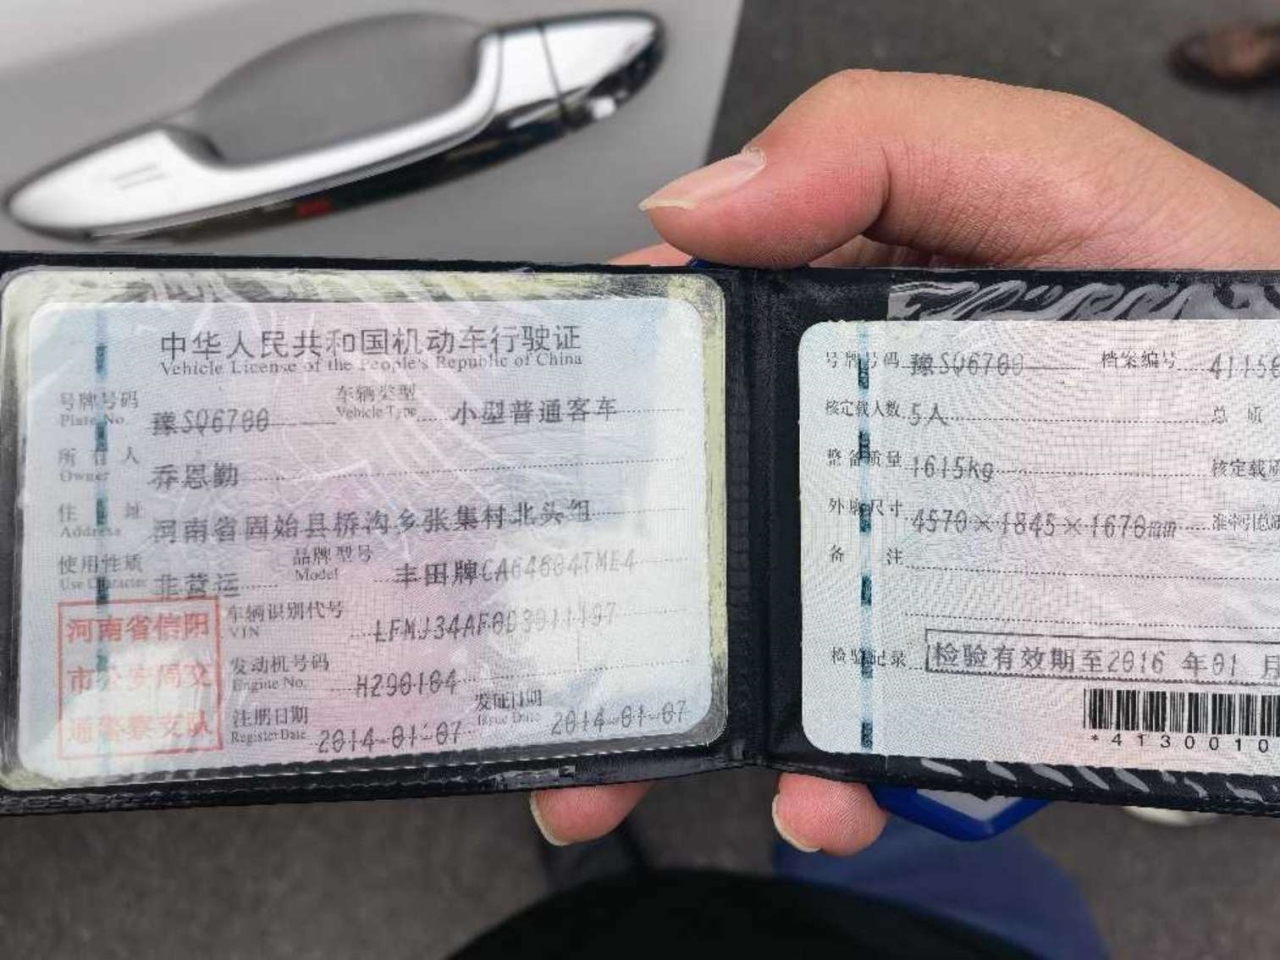 中华人民共和国机动车行驶证
Vehicle License of the People's Republic of China
号牌号码 豫SQ6700 车辆类型 小型普通客车
Plate No. Vehicle Type
所有人 乔恩勤
Owner
住址 河南省固始县桥沟乡张集村北头组
Address
使用性质 非营运 品牌型号 丰田牌CA64604TME4
Use Character Model
河南省信阳
市公安局交
通警察支队
车辆识别代号
VIN
发动机号码 H290104
Engine No.
注册日期 2014-01-07 发证日期 2014-01-07
Register Date Issue Date
号牌号码 豫SQ6700 档案编号 41150
核定载人数 5人 总质
整备质量 1615kg 核定载质
外廓尺寸 4570×1845×1670mm 准牵引总
备注
检验记录 检验有效期至2016年01月
*4130010